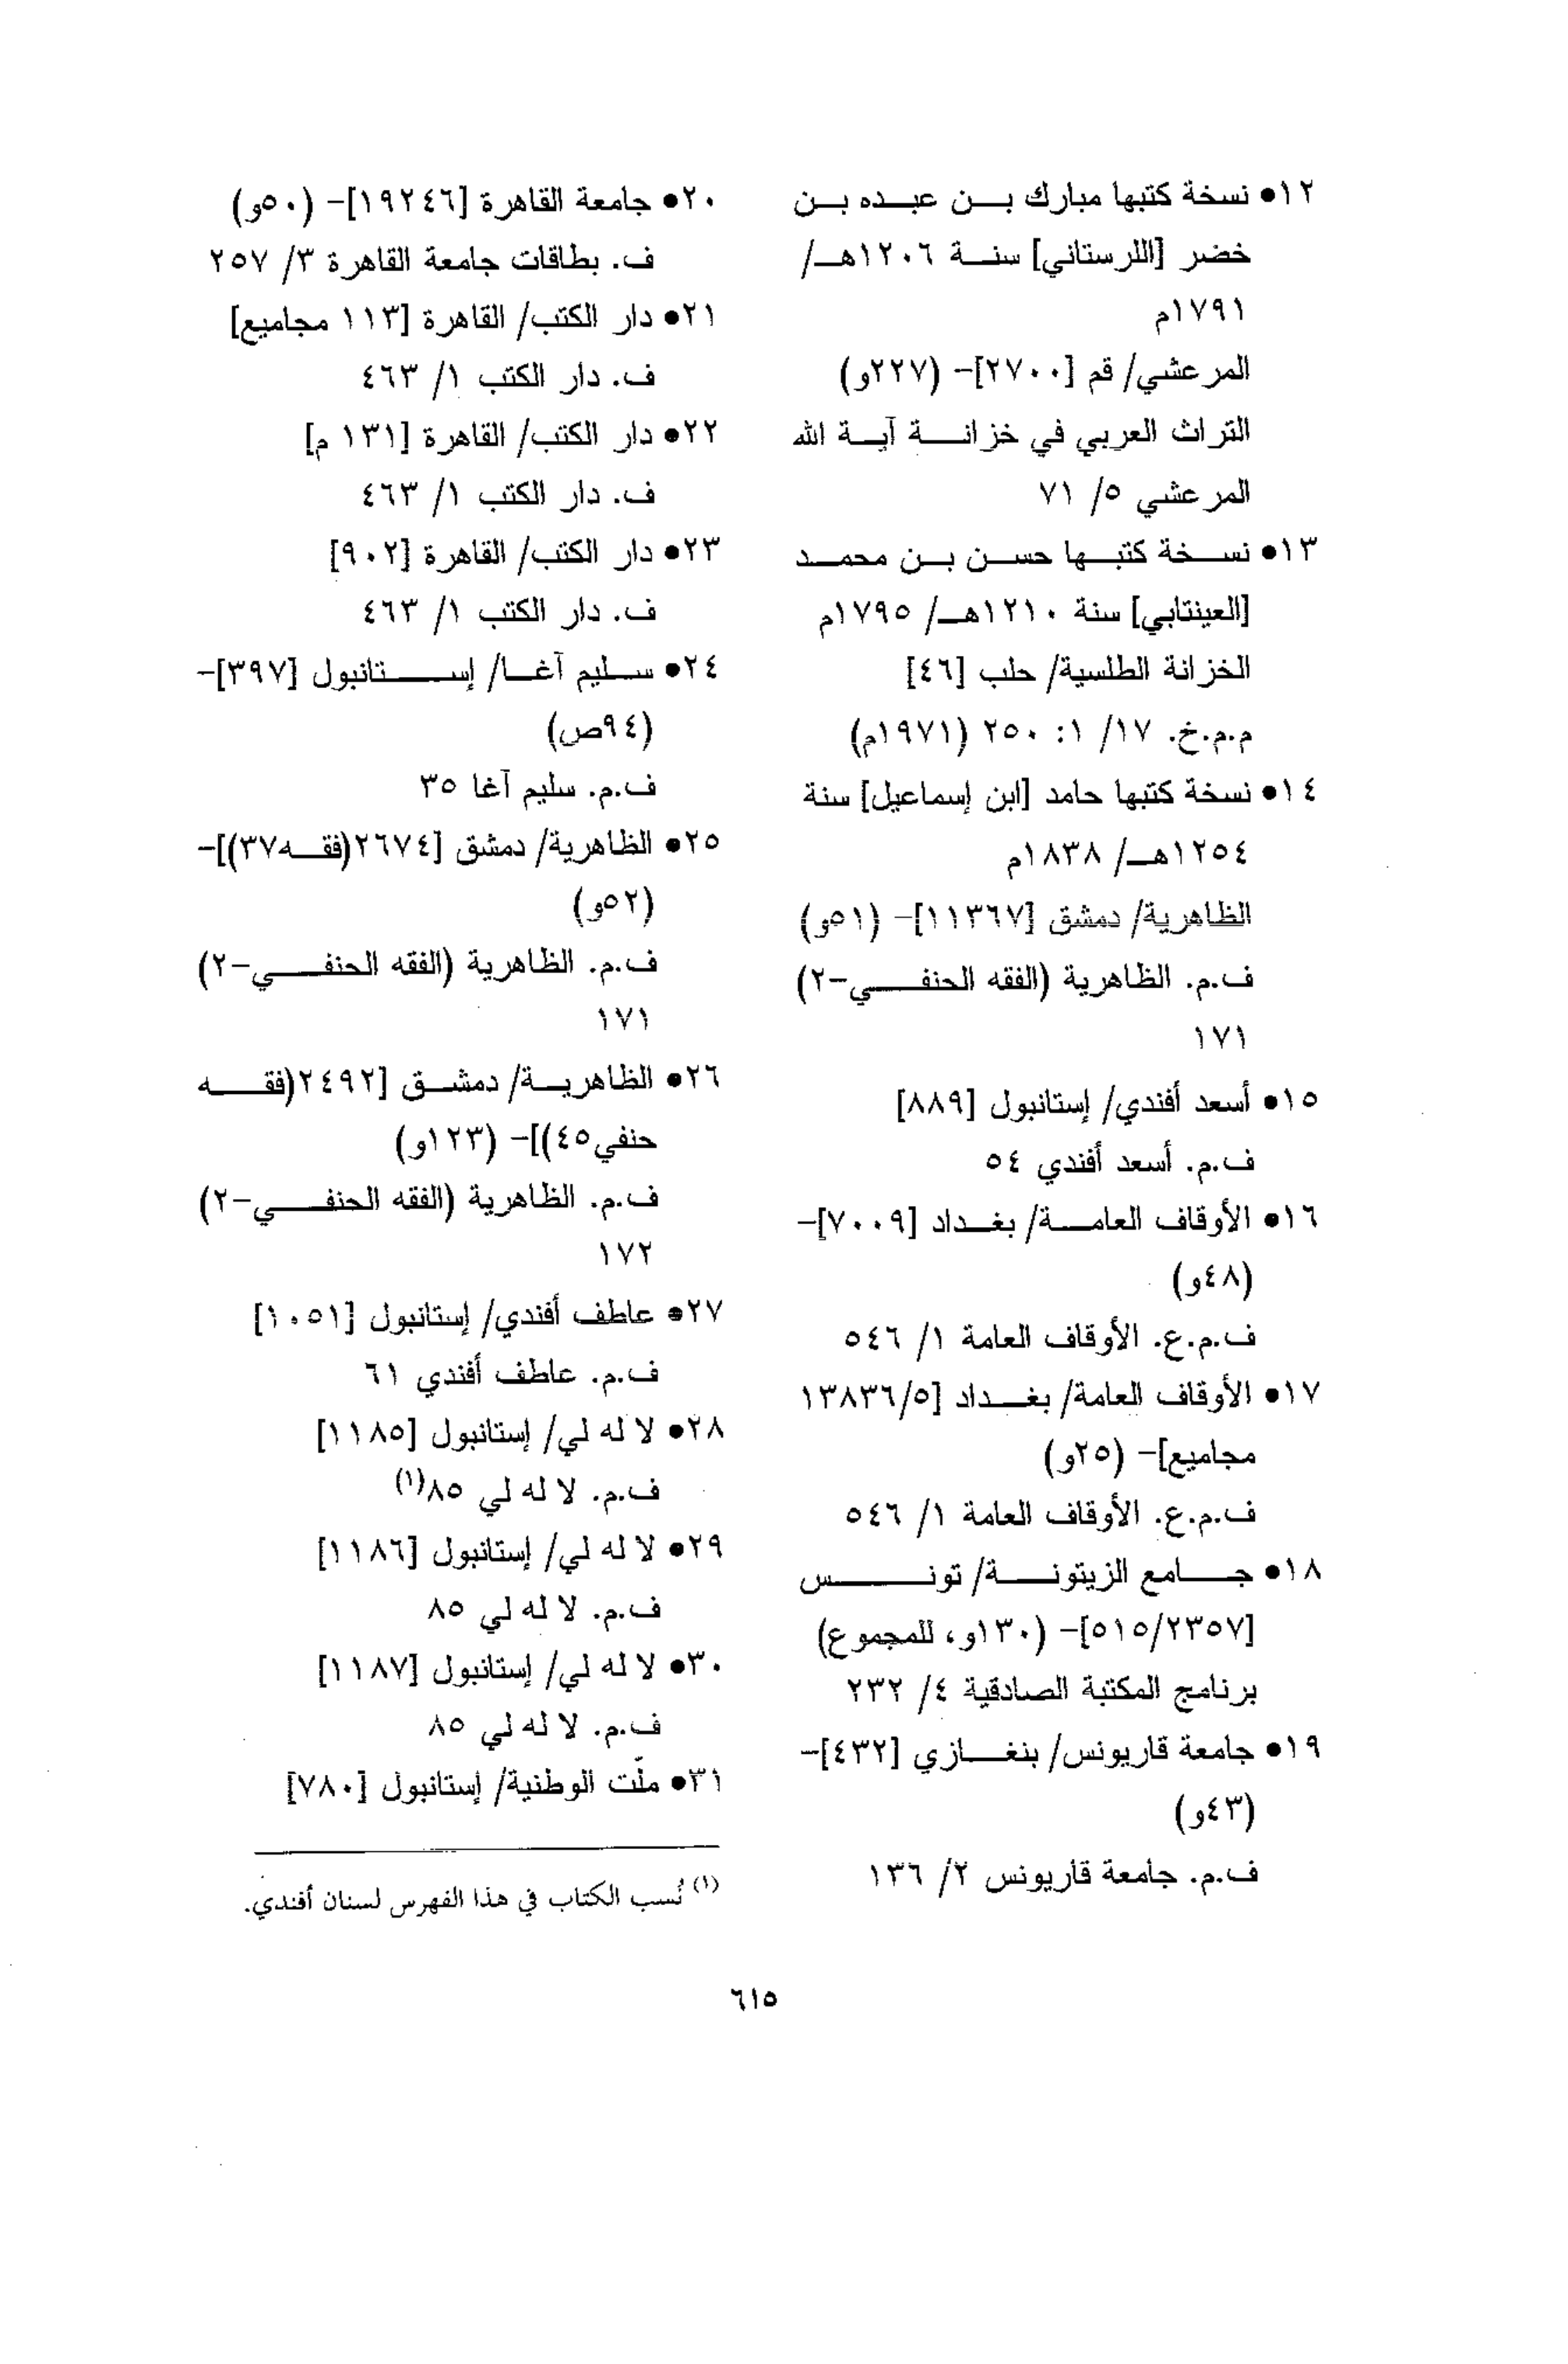 ١٢• نسخة كتبها مبارك بن عبده بن
خضر [اللرستاني] سنة ١٢٠٦هـ/
١٧٩١م
المرعشي/ قم [٢٧٠٠]- (٢٢٧و)
التراث العربي في خزانة آية الله
المرعشي ٥/ ٧١
١٣• نسخة كتبها حسن بن محمد
[العينتابي] سنة ١٢١٠هـ/ ١٧٩٥م
الخزانة الطلسية/ حلب [٤٦]
م.م.خ. ١٧/ ١: ٢٥٠ (١٩٧١م)
١٤• نسخة كتبها حامد [ابن إسماعيل] سنة
١٢٥٤هـ/ ١٨٣٨م
الظاهرية/ دمشق [١١٣٦٧]- (٥١و)
ف.م. الظاهرية (الفقه الحنفي-٢)
١٧١
١٥• أسعد أفندي/ إستانبول [٨٨٩]
ف.م. أسعد أفندي ٥٤
١٦• الأوقاف العامة/ بغداد [٧٠٠٩]-
(٤٨و)
ف.م.ع. الأوقاف العامة ١/ ٥٤٦
١٧• الأوقاف العامة/ بغداد [١٣٨٣٦/٥
مجاميع]- (٢٥و)
ف.م.ع. الأوقاف العامة ١/ ٥٤٦
١٨• جامع الزيتونة/ تونس
[٥١٥/٢٣٥٧]- (١٣٠و، للمجموع)
برنامج المكتبة الصادقية ٤/ ٢٣٢
١٩• جامعة قاريونس/ بنغازي [٤٣٢]-
(٤٣و)
ف.م. جامعة قاريونس ٢/ ١٣٦
٢٠• جامعة القاهرة [١٩٢٤٦]- (٥٠و)
ف. بطاقات جامعة القاهرة ٣/ ٢٥٧
٢١• دار الكتب/ القاهرة [١١٣ مجاميع]
ف. دار الكتب ١/ ٤٦٣
٢٢• دار الكتب/ القاهرة [١٣١ م]
ف. دار الكتب ١/ ٤٦٣
٢٣• دار الكتب/ القاهرة [٩٠٢]
ف. دار الكتب ١/ ٤٦٣
٢٤• سليم آغا/ إستانبول [٣٩٧]-
(٩٤ص)
ف.م. سليم آغا ٣٥
٢٥• الظاهرية/ دمشق [٢٦٧٤(فقه٣٧)]-
(٥٢و)
ف.م. الظاهرية (الفقه الحنفي-٢)
١٧١
٢٦• الظاهرية/ دمشق [٢٤٩٢(فقه
حنفي٤٥)]- (١٢٣و)
ف.م. الظاهرية (الفقه الحنفي-٢)
١٧٢
٢٧• عاطف أفندي/ إستانبول [١٠٥١]
ف.م. عاطف أفندي ٦١
٢٨• لا له لي/ إستانبول [١١٨٥]
ف.م. لا له لي ٨٥(١)
٢٩• لا له لي/ إستانبول [١١٨٦]
ف.م. لا له لي ٨٥
٣٠• لا له لي/ إستانبول [١١٨٧]
ف.م. لا له لي ٨٥
٣١• ملّت الوطنية/ إستانبول [٧٨٠]
(١) نُسب الكتاب في هذا الفهرس لسنان أفندي.
٦١٥